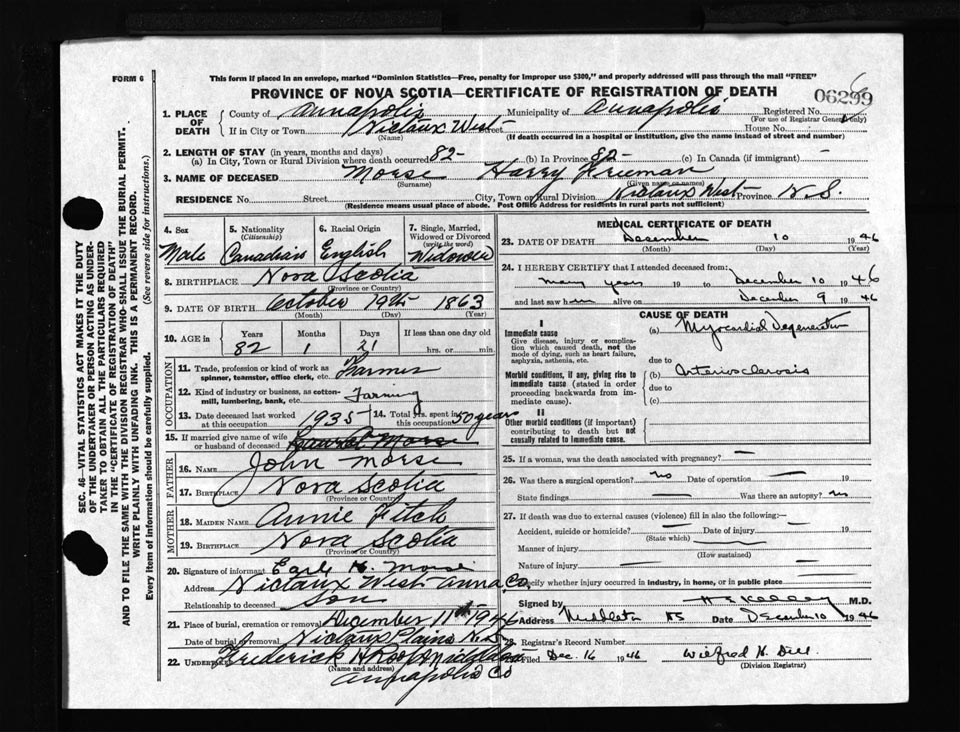 FORM 6
This form if placed in an envelope, marked "Dominion Statistics—Free, penalty for improper use $300," and properly addressed will pass through the mail "FREE"
PROVINCE OF NOVA SCOTIA—CERTIFICATE OF REGISTRATION OF DEATH
1. PLACE OF DEATH
County of Annapolis Municipality of Annapolis Registered No.
(For use of Registrar General only)
If in City or Town Nictaux West Street House No.
(Name) (If death occurred in a hospital or institution, give the name instead of street and number)
2. LENGTH OF STAY (in years, months and days)
(a) In City, Town or Rural Division where death occurred 82- (b) In Province 82- (c) In Canada (if immigrant) -
3. NAME OF DECEASED Morse Harry Freeman
(Surname) (Given name or names)
RESIDENCE No. Street City, Town or Rural Division Nictaux West Province N.S.
(Residence means usual place of abode. Post Office Address for residents in rural parts not sufficient)
4. Sex
Male
5. Nationality
(Citizenship)
Canadian
6. Racial Origin
English
7. Single, Married, Widowed or Divorced
(write the word)
Widower
8. BIRTHPLACE Nova Scotia
(Province or Country)
9. DATE OF BIRTH October 19th 1863
(Month) (Day) (Year)
10. AGE in Years Months Days If less than one day old
82 1 21 hrs. or min.
OCCUPATION
11. Trade, profession or kind of work as spinner, teamster, office clerk, etc. Farmer
12. Kind of industry or business, as cotton-mill, lumbering, bank, etc. Farming
13. Date deceased last worked at this occupation 1935
14. Total yrs. spent in this occupation 50 years
15. If married give name of wife or husband of deceased Morse
FATHER
16. NAME John Morse
17. BIRTHPLACE Nova Scotia
(Province or Country)
MOTHER
18. MAIDEN NAME Annie Fitch
19. BIRTHPLACE Nova Scotia
(Province or Country)
20. Signature of informant Earle H. Morse
Address Nictaux West Anna Co.
Relationship to deceased Son
21. Place of burial, cremation or removal December 11th 1946
Date of burial or removal Nictaux Plains N.S.
22. UNDERTAKER Frederick H Roop
(Name and address)
Annapolis Co
MEDICAL CERTIFICATE OF DEATH
23. DATE OF DEATH December 10 1946
(Month) (Day)
24. I HEREBY CERTIFY that I attended deceased from:
many years 19 to December 10 1946
and last saw him alive on December 9 1946
CAUSE OF DEATH
I
Immediate cause
Give disease, injury or complication which caused death, not the mode of dying, such as heart failure, asphyxia, asthenia, etc.
(a) Myocardial Degeneration
due to
Morbid conditions, if any, giving rise to immediate cause (stated in order proceeding backwards from immediate cause).
(b) Arteriosclerosis
due to
(c)
II
Other morbid conditions (if important) contributing to death but not causally related to immediate cause.
25. If a woman, was the death associated with pregnancy? —
26. Was there a surgical operation? no Date of operation — 19
State findings — Was there an autopsy? no
27. If death was due to external causes (violence) fill in also the following:—
Accident, suicide or homicide? — Date of injury — 19
(State which)
Manner of injury —
(How sustained)
Nature of injury — —
Specify whether injury occurred in industry, in home, or in public place
Signed by H E Kelley M.D.
Address Middleton NS Date December 10 1946
28. Registrar's Record Number
Filed Dec. 16 1946 Wilfred H. Dill
(Division Registrar)
SEC. 46—VITAL STATISTICS ACT MAKES IT THE DUTY
OF THE UNDERTAKER OR PERSON ACTING AS UNDERTAKER TO OBTAIN ALL THE PARTICULARS REQUIRED
IN THE "CERTIFICATE OF REGISTRATION OF DEATH"
AND TO FILE THE SAME WITH THE DIVISION REGISTRAR WHO SHALL ISSUE THE BURIAL PERMIT.
WRITE PLAINLY WITH UNFADING INK. THIS IS A PERMANENT RECORD.
Every item of information should be carefully supplied. (See reverse side for instructions.)